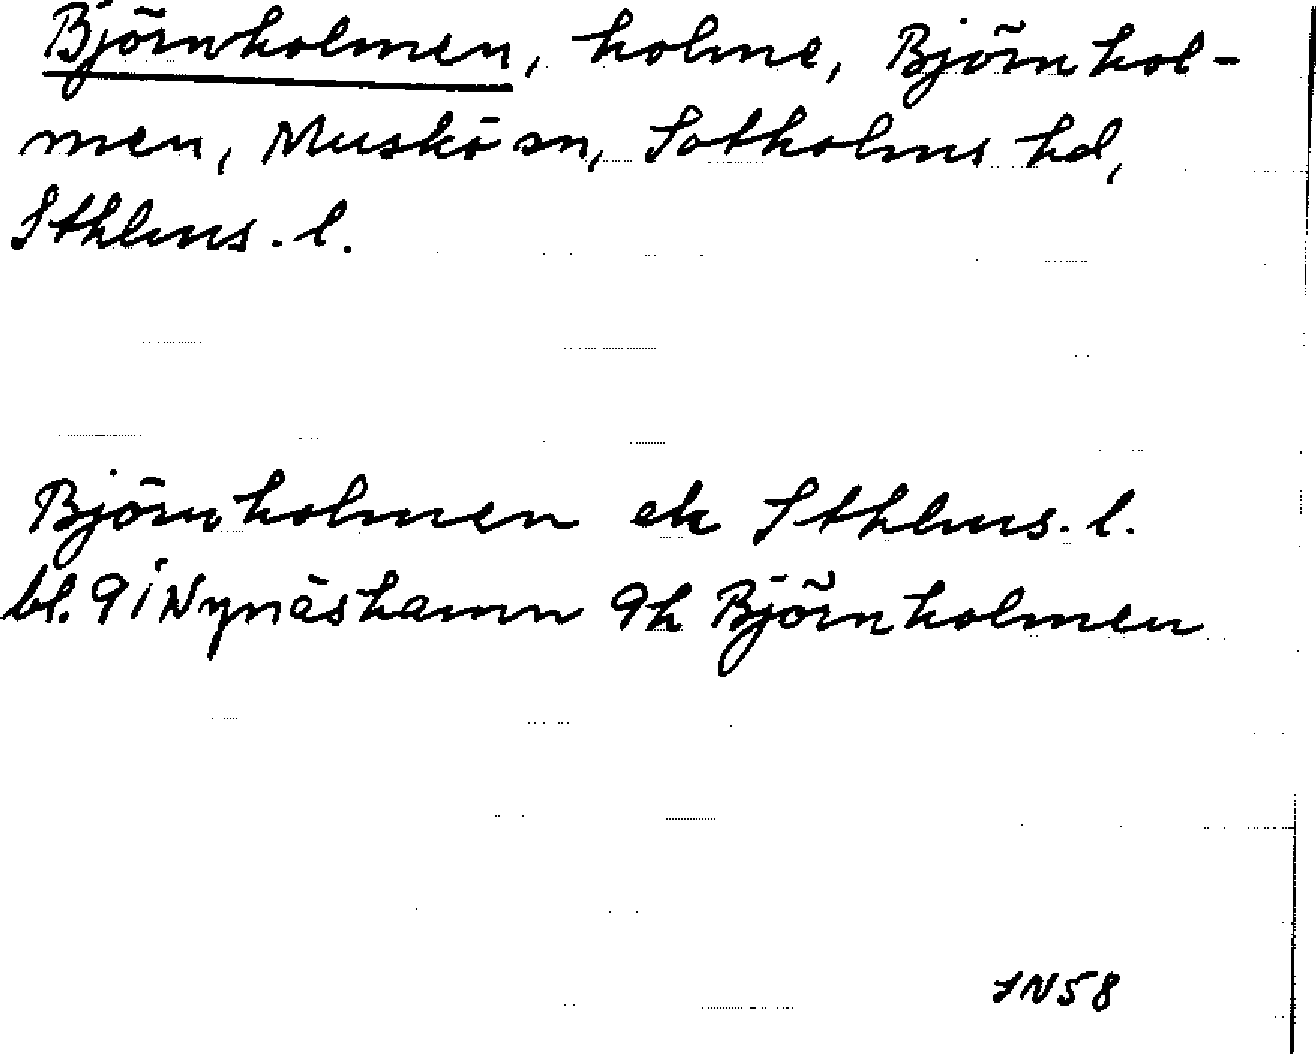 Björnholmen, holme, Björnhol-
men, Muskö sn, Sotholms hd,
Sthlms. l.
Björnholmen ek Sthlms. l.
bl. 9 i Nynäshamn 9h Björnholmen
IN58